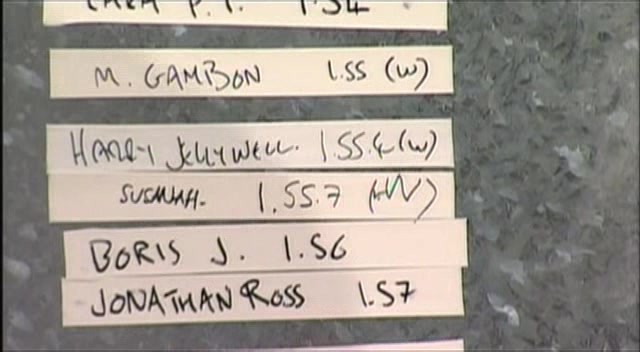 TARA P.T. 1.54
M. GAMBON 1.55 (W)
HARRY JELLYWELL. 1.55.4 (W)
SUSANAH. 1.55.7 (W)
BORIS J. 1.56
JONATHAN ROSS 1.57